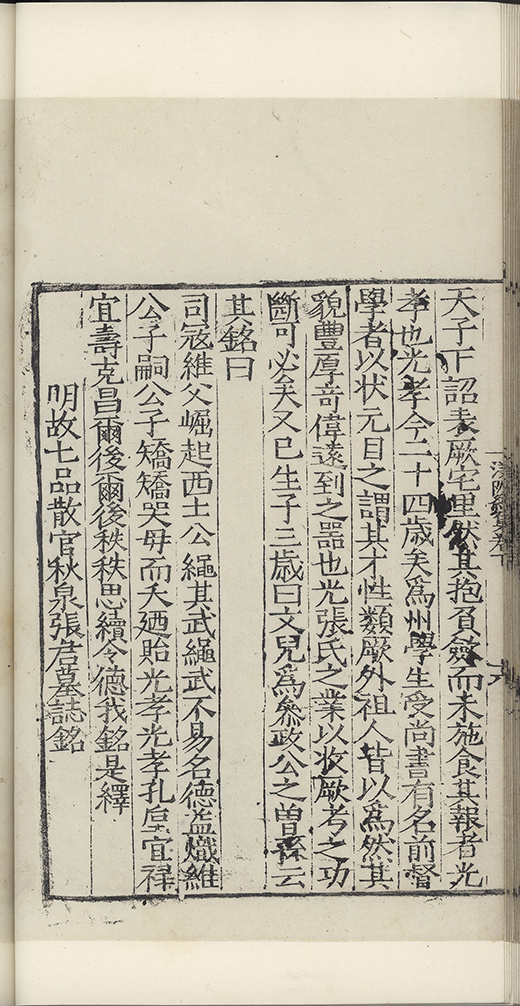 天子下詔表厥宅里然其抱負斂而未施食其報者光
孝也光孝今二十四歲矣爲州學生受尚書有名前督
學者以状元目之謂其才性類厥外祖人皆以爲然其
貌豐厚奇偉遠到之器也光張氏之業以收厥考之功
斷可必矣又已生子三歲曰文兒爲叅政公之曽孫云
其銘曰
司寇維父崛起西土公繩其武繩武不易名德益熾維
公子嗣公子矯矯哭母而夭廼貽光孝光孝孔厚宜祿
宜壽克昌爾後爾後秩秩思續令德我銘是繹
明故七品散官秋泉張君墓誌銘